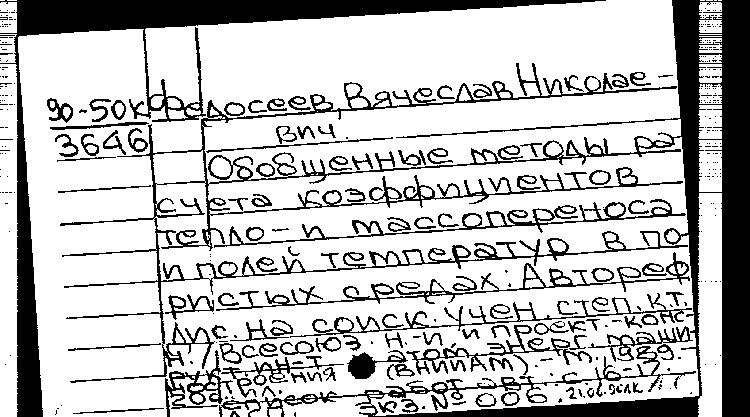 90-50К
3646
Федосеев, Вячеслав Николае-
вич.
Обобщенные методы ра
счета коэффициентов
тепло- и массопереноса
и полей температур в по
ристых средах: Автореф
дис. на соиск. учен. степ. к.т.
н. / Всесоюз. н.-и. и проект.-конс-
рукт. ин-т атом. энерг. маши-
ностроения (ВНИИАМ). - М., 1989. -
20с. ил.
Список работ авт.: с 16-17.
Экз. № 006. 21.06.